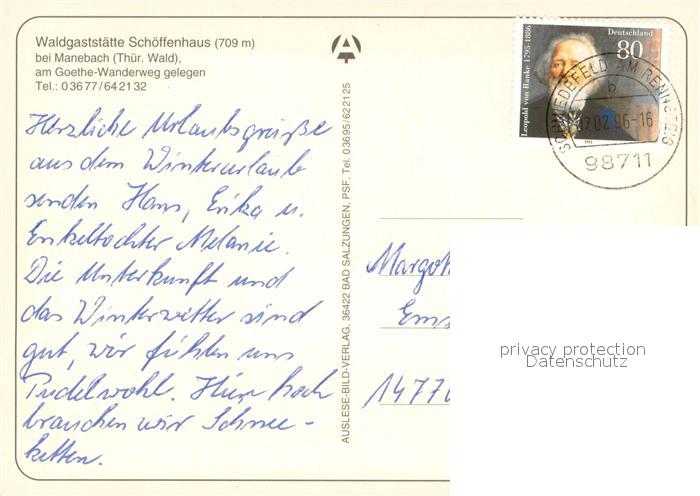 Waldgaststätte Schöffenhaus (709 m)
bei Manebach (Thür. Wald),
am Goethe-Wanderweg gelegen
Tel.: 03677/642132
Herzliche Urlaubsgrüße
aus dem Winterurlaub
senden Hans, Erika u.
Enkeltochter Melanie.
Die Unterkunft und
das Winterwetter sind
gut, wir fühlen uns
Pudelwohl. Hier hoch
brauchen wir Schnee-
ketten.
AUSLESE-BILD-VERLAG, 36422 BAD SALZUNGEN, PSF, Tel. 03695/622125
Deutschland
80
Leopold von Ranke 1795-1886
SCHMIEDEFELD AM RENNSTEIG
b
07.02.96-16
98711
Margot
Ems
1477
privacy protection
Datenschutz